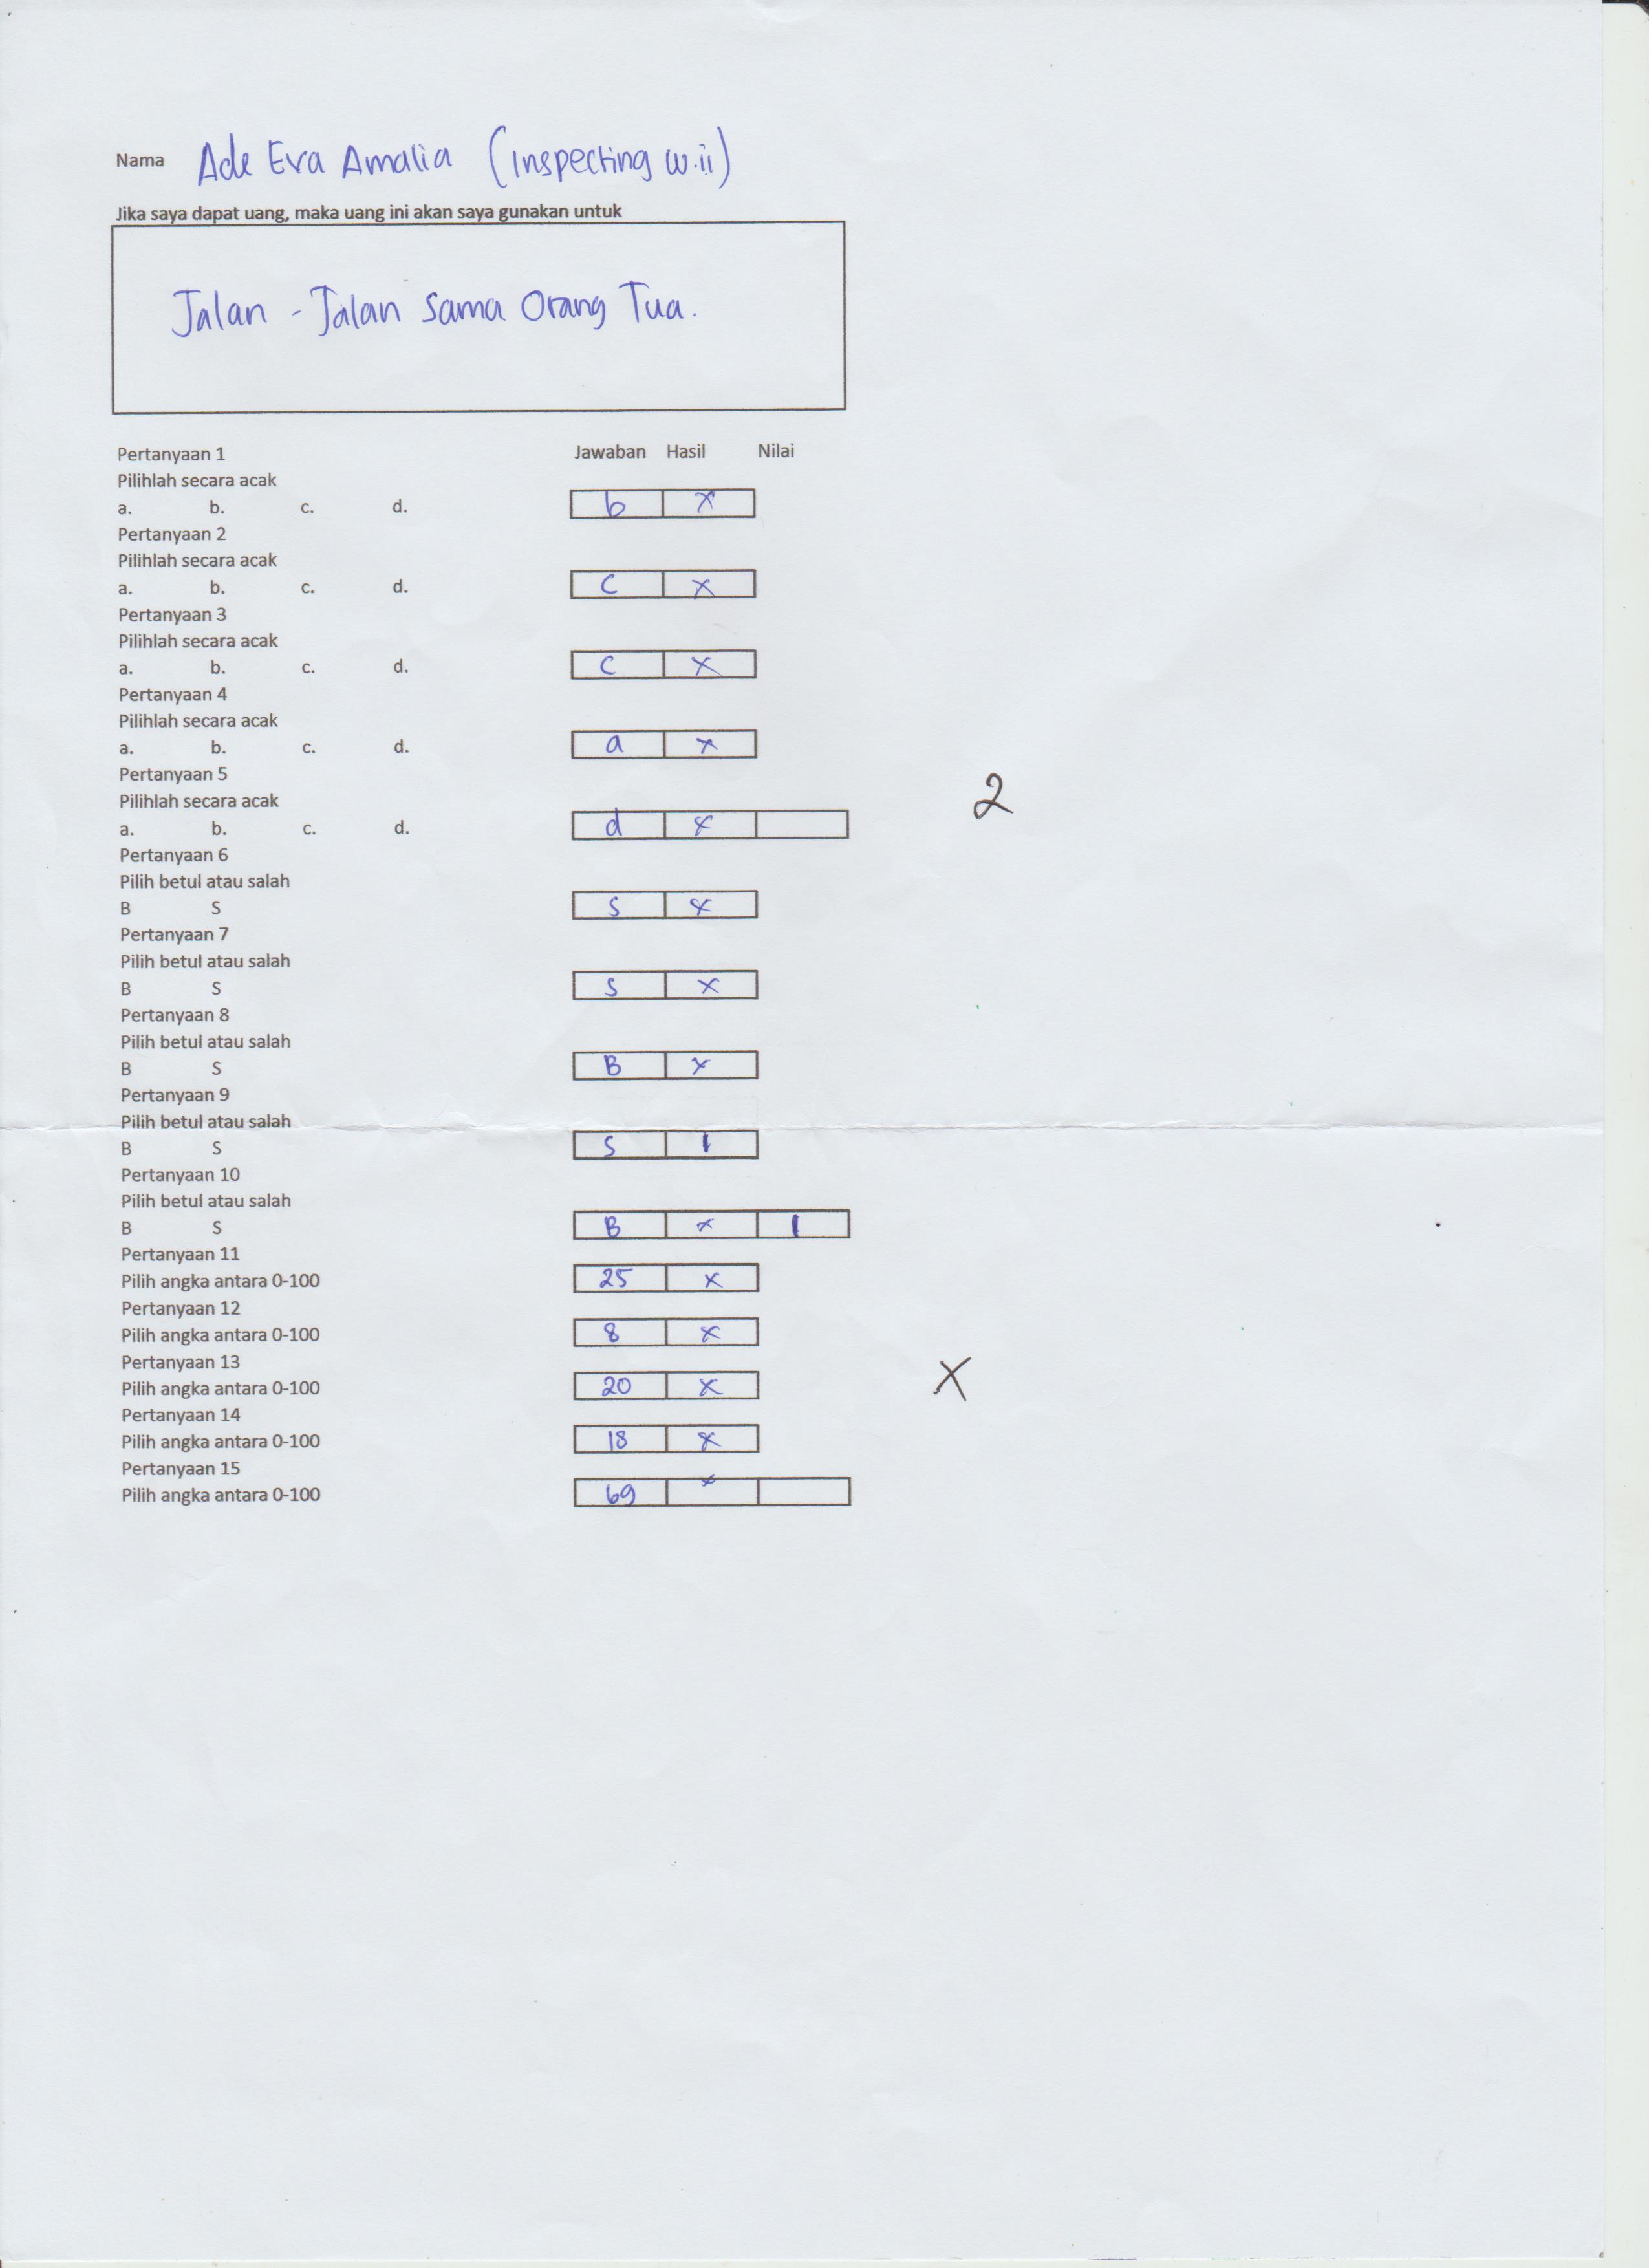 Nama Ade Eva Amalia (Inspecting w.ii)
Jika saya dapat uang, maka uang ini akan saya gunakan untuk
Jalan - Jalan sama Orang Tua.
Pertanyaan 1 Jawaban Hasil Nilai
Pilihlah secara acak
a. b. c. d. b x
Pertanyaan 2
Pilihlah secara acak
a. b. c. d. c x
Pertanyaan 3
Pilihlah secara acak
a. b. c. d. c x
Pertanyaan 4
Pilihlah secara acak
a. b. c. d. a x
Pertanyaan 5
Pilihlah secara acak 2
a. b. c. d. d x
Pertanyaan 6
Pilih betul atau salah
B S S x
Pertanyaan 7
Pilih betul atau salah
B S S x
Pertanyaan 8
Pilih betul atau salah
B S B x
Pertanyaan 9
Pilih betul atau salah
B S S 1
Pertanyaan 10
Pilih betul atau salah
B S B x 1
Pertanyaan 11
Pilih angka antara 0-100 25 x
Pertanyaan 12
Pilih angka antara 0-100 8 x
Pertanyaan 13
Pilih angka antara 0-100 20 x X
Pertanyaan 14
Pilih angka antara 0-100 18 x
Pertanyaan 15
Pilih angka antara 0-100 69 x